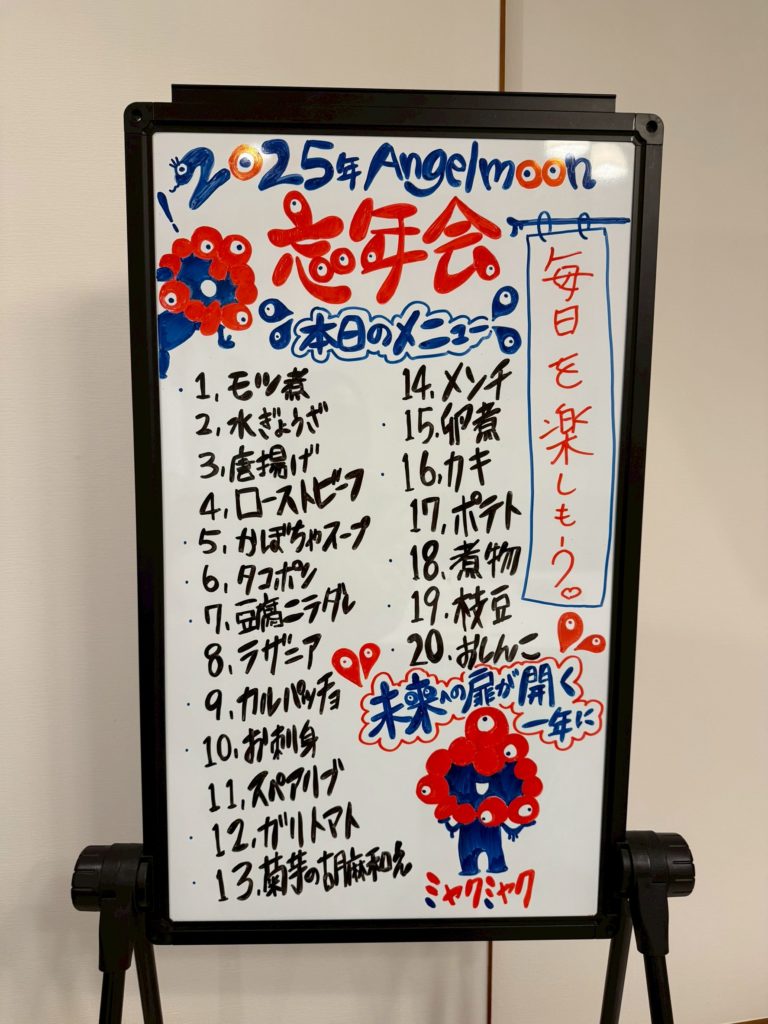 2025年 Angelmoon
忘年会
本日のメニュー
毎日を楽しもう。
1. モツ煮
2. 水ぎょうざ
3. 唐揚げ
4. ローストビーフ
5. かぼちゃスープ
6. タコポン
7. 豆腐ニラダレ
8. ラザニア
9. カルパッチョ
10. お刺身
11. スペアリブ
12. ガリトマト
13. 菊芋の胡麻和え
14. メンチ
15. 卵煮
16. カキ
17. ポテト
18. 煮物
19. 枝豆
20. おしんこ
未来への扉が開く
一年に
ミャクミャク